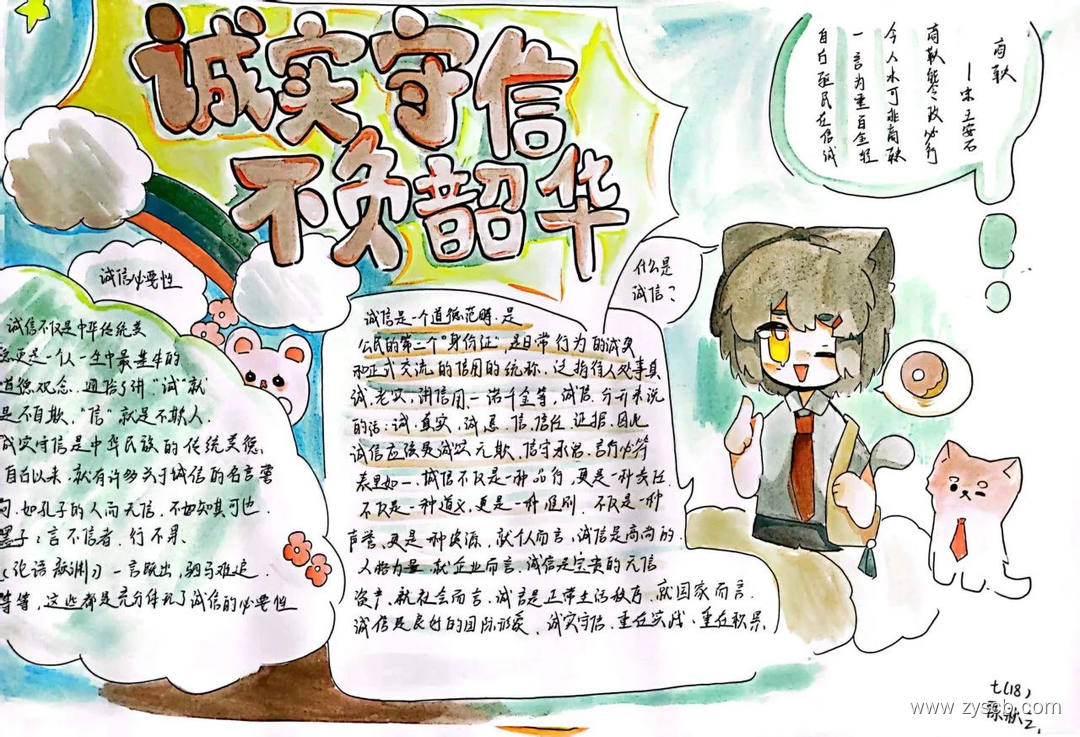 诚实守信
不负韶华
商鞅
—宋 王安石
自古驱民在信诚
一言为重百金轻
今人未可非商鞅
商鞅能令政必行
什么是
诚信?
诚信必要性
诚信不仅是中华传统美
更是一个人一生中最基本的
道德观念.通俗讲."诚"就
是不自欺."信"就是不欺人.
诚实守信是中华民族的传统美德.
自古以来.就有许多关于诚信的名言警
句.如孔子的人而无信.不知其可也.
墨子:言不信者.行不果.
《论语 颜渊》一言既出,驷马难追.
等等,这些都是充分体现了诚信的必要性
诚信是一个道德范畴.是
公民的第二个"身份证".是日常行为的诚实
和正式交流的信用的统称.泛指待人处事真
诚.老实.讲信用.一诺千金等.诚信.分开来说
的话:诚.真实,诚恳.信.信任.证据.因此
诚信应该是诚实无欺.信守承诺.言行必符
表里如一.诚信不仅是一种品行.更是一种责任
不仅是一种道义.更是一种准则.不仅是一种
声誉.更是一种资源.就个人而言,诚信是高尚的.
人格力量.就企业而言.诚信是宝贵的无信
资产.就社会而言.诚信是正常生活秩序.就国家而言.
诚信是良好的国际形象.诚实守信.重在实践、重在积累.
七(18)
www.zyscb.com